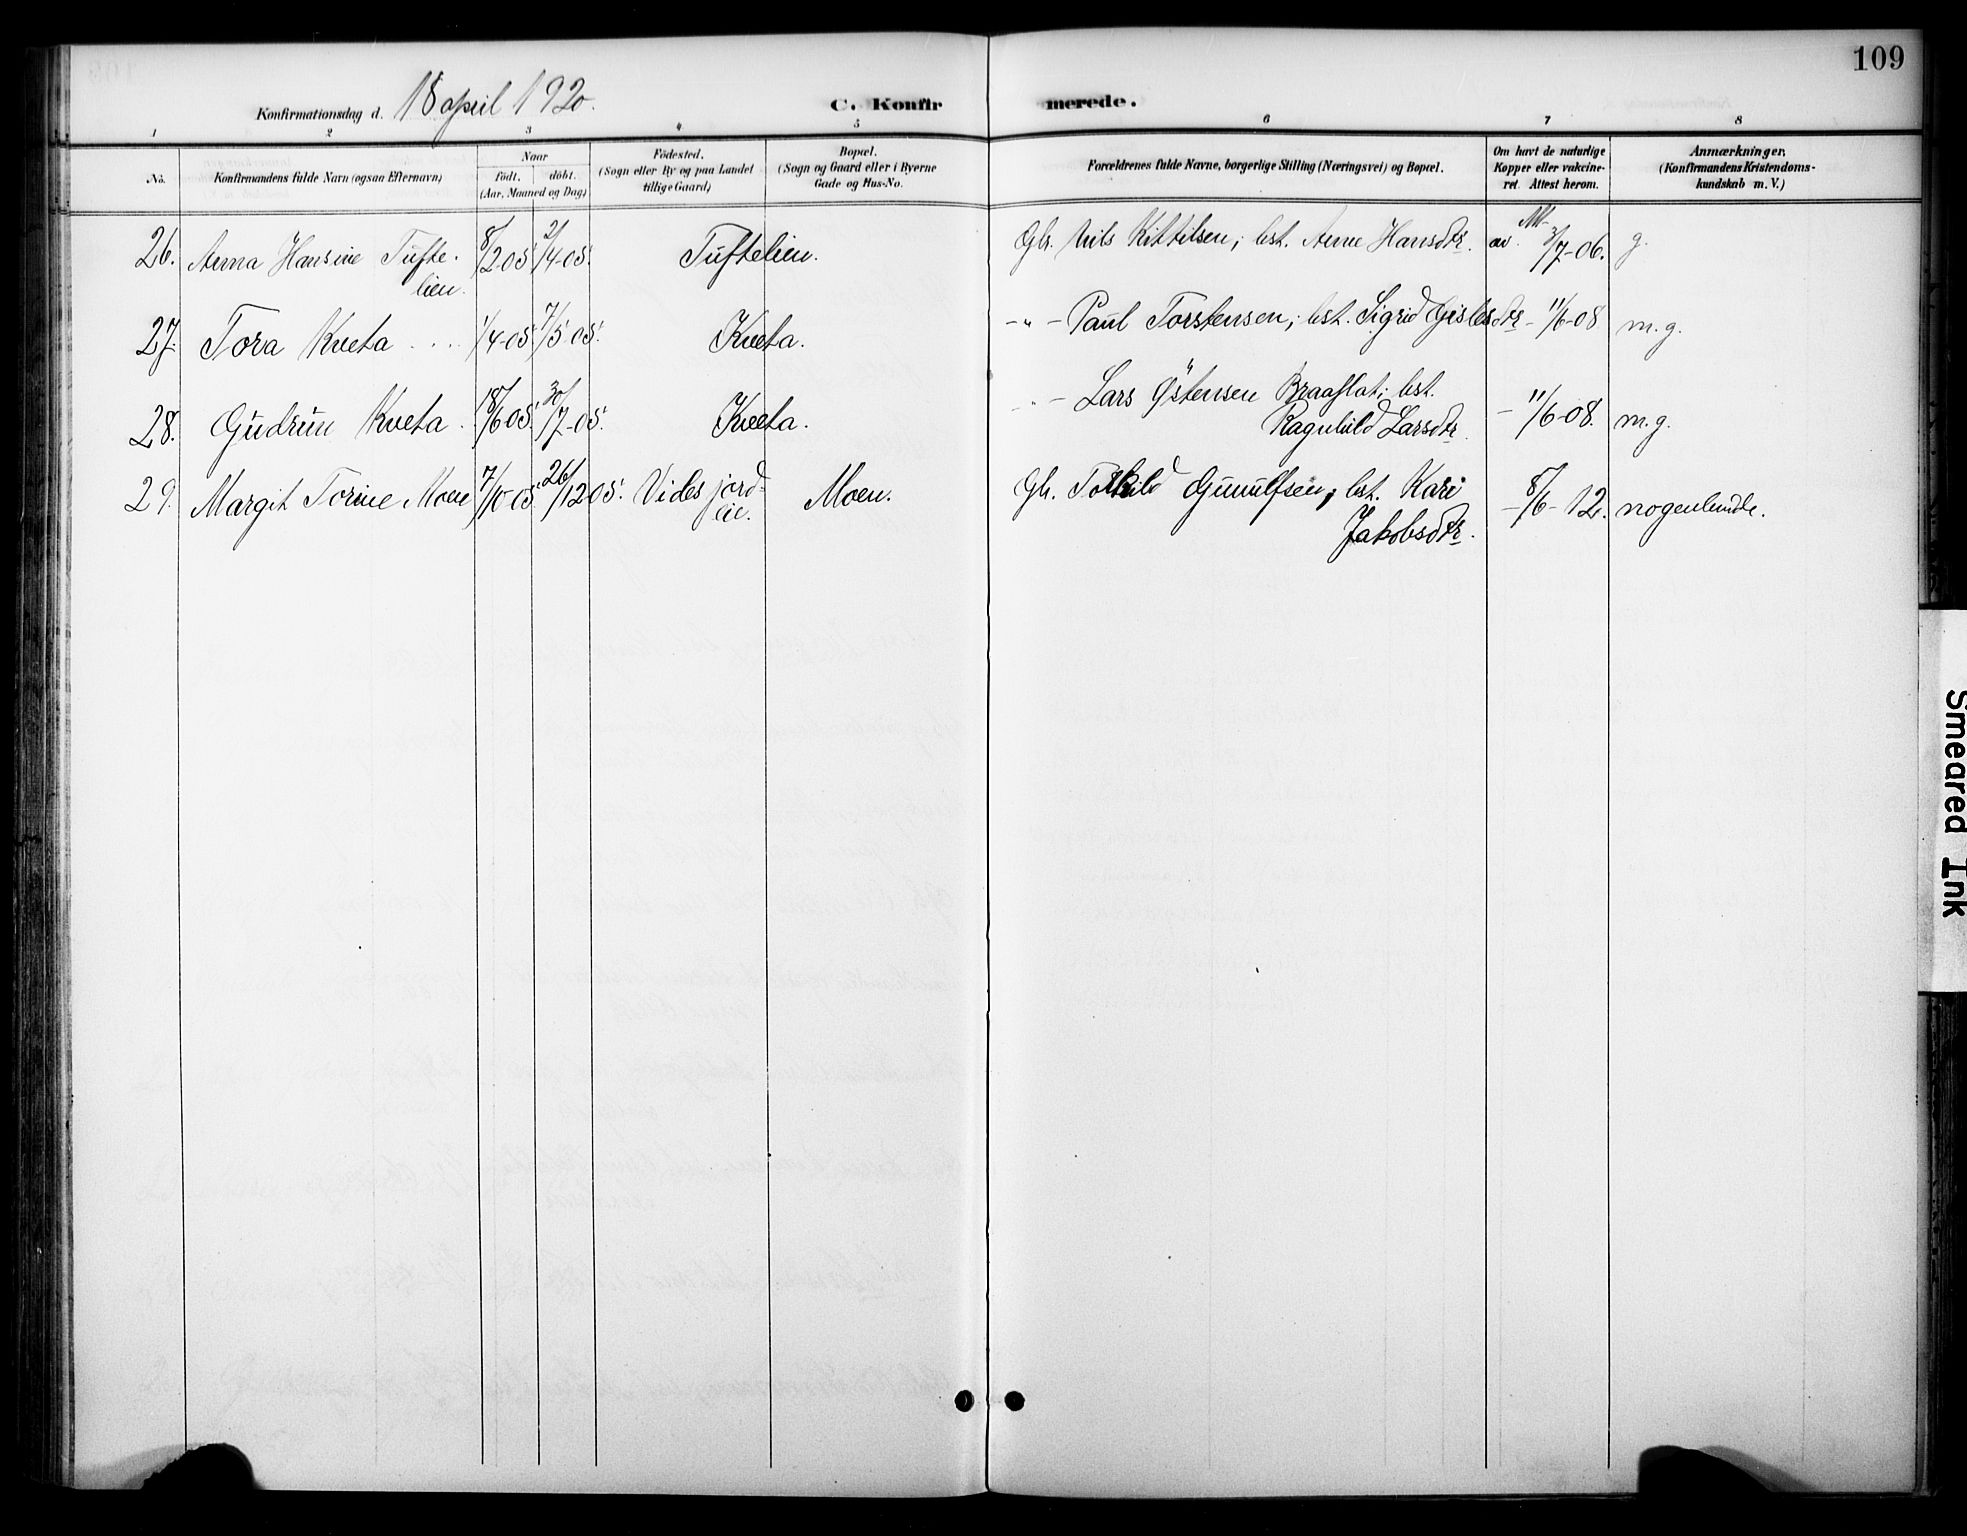 109
Konfirmationsdag d. 18 april 1920.
C. Konfir merede.
1 2 3 4 5 6 7 8
No.
Konfirmandens fulde Navn (ogsaa Efternavn)
Naar
födt. döbt.
(Aar, Maaned og Dag)
Födested.
(Sogn eller By og paa Landet
tillige Gaard)
Bopæl.
(Sogn og Gaard eller i Byerne
Gade og Hus-No.
Forældrenes fulde Navne, borgerlige Stilling (Næringsvei) og Bopæl.
Om havt de naturlige
Kopper eller vakcine-
ret. Attest herom.
Anmærkninger,
(Konfirmandens Kristendoms-
kundskab m. V.)
26. Anna Hansine Tufte- 8/2 05. 2/4-05. Tuftelien. Gbr. Nils Kittilsen; hst. Anne Hansdtr. av 3/7-06. g.
lien.
27. Tora Kveta 1/4-05. 7/5 05. Kveta. -"- Paul Torstensen; hst. Sigrid Gislesdtr - 11/6-08 m.g.
28. Gudrun Kveta 18/6 05. 30/7-05. Kveta. -"- Lars Östensen Braaflat; hst.
Ragnhild Larsdtr. - 11/6-08. m.g.
29. Margit Torine Moen 7/10-05. 26/12 05. Vides jord- Moen. Gbr. Torkild Gunulfsen; hst. Kari - 8/6-12. nogenlunde.
eie. Jakobsdtr.
Smeared Ink